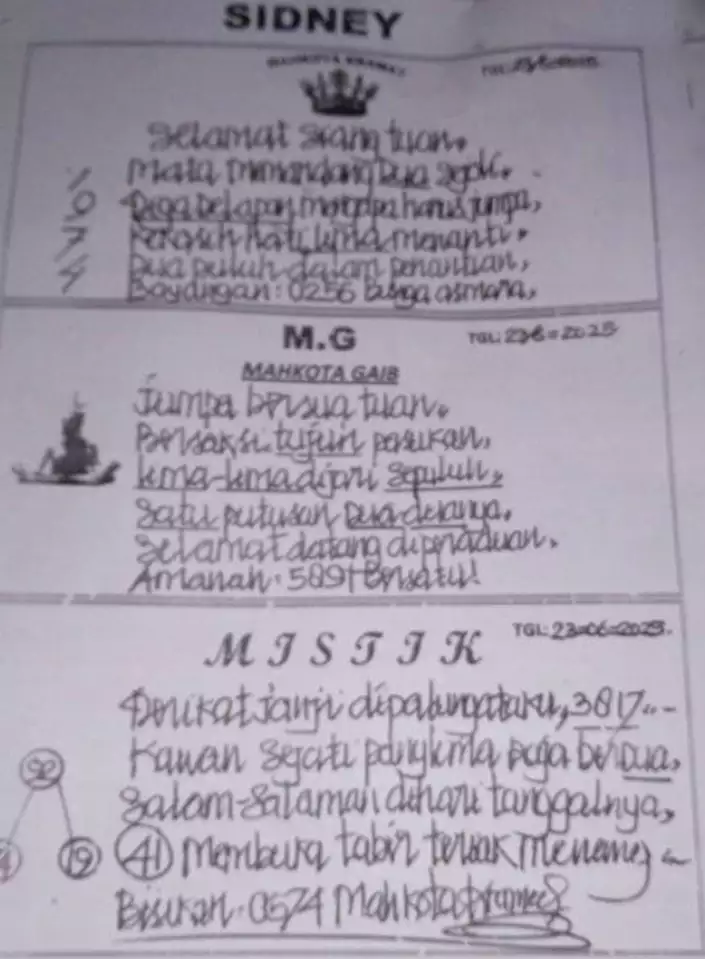 SIDNEY
MAHKOTA KRAMAT
TGL:
Selamat siang tuan.
1
Mata memandang dua sejoli.
0
Tiga delapan mengapa harus jumpa,
7
Kekasih hati lima menanti.
4
Dua puluh dalam penantian,
Bayangan: 0256 bunga asmara,
M.G
TGL: 23-6=2025
MAHKOTA GAIB
Jumpa bersua tuan.
Bersaksi tujuh pasukan,
lima-lima dijari sepuluh,
Satu putusan dua-duanya.
Selamat datang
Amanah: 5891 bersatu!
MISTIK
TGL: 23=06=2025.
janji 3817..-
Kawan sejati panglima raja berdua,
92
Salam-salaman dihari tanggalnya,
4
19
41 Membuka tabir menang
Bisikan: 0574 Mahkota